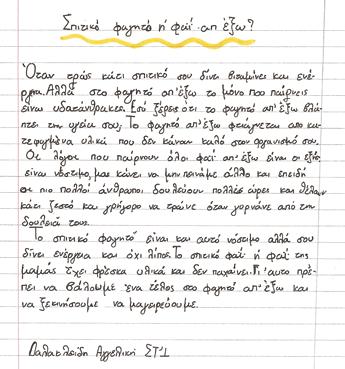 Σπιτικό φαγητό ή φαϊ απ' έξω?
Όταν τρώς κάτι σπιτικό σου δίνει βιταμίνες και ενέ-
ργεια. Αλλά στο φαγητό απ' έξω το μόνο που παίρνεις
είναι υδατάνθρακες. Εσύ ξέρεις ότι το φαγητό απ' έξω βλά-
πτει την υγεία σου; Το φαγητό απ' έξω φτιάχνεται από κα-
τεψυγμένα υλικά που δεν κάνουν καλό στον οργανισμό σου.
Οι λόγοι που παίρνουν όλοι φαϊ απ' έξω είναι οι εξής
είναι νόστιμο, μας κάνει να μην πεινάμε άλλο και επειδή
οι πιο πολλοί άνθρωποι δουλεύουν πολλές ώρες και θέλουν
κάτι ζεστό και γρήγορο να τρώνε όταν γυρνάνε από την
δουλειά τους.
Το σπιτικό φαγητό είναι και αυτό νόστιμο αλλά σου
δίνει ενέργεια και όχι λίπος. Το σπιτικό φαϊ ή φαϊ της
μαμάς έχει φρέσκα υλικά και δεν παχαίνει. Γι' αυτο πρέ-
πει να βάλουμε ένα τέλος στο φαγητό απ' έξω και
να ξεκινήσουμε να μαγειρεύουμε.
Αγγελική ΣΤ'1